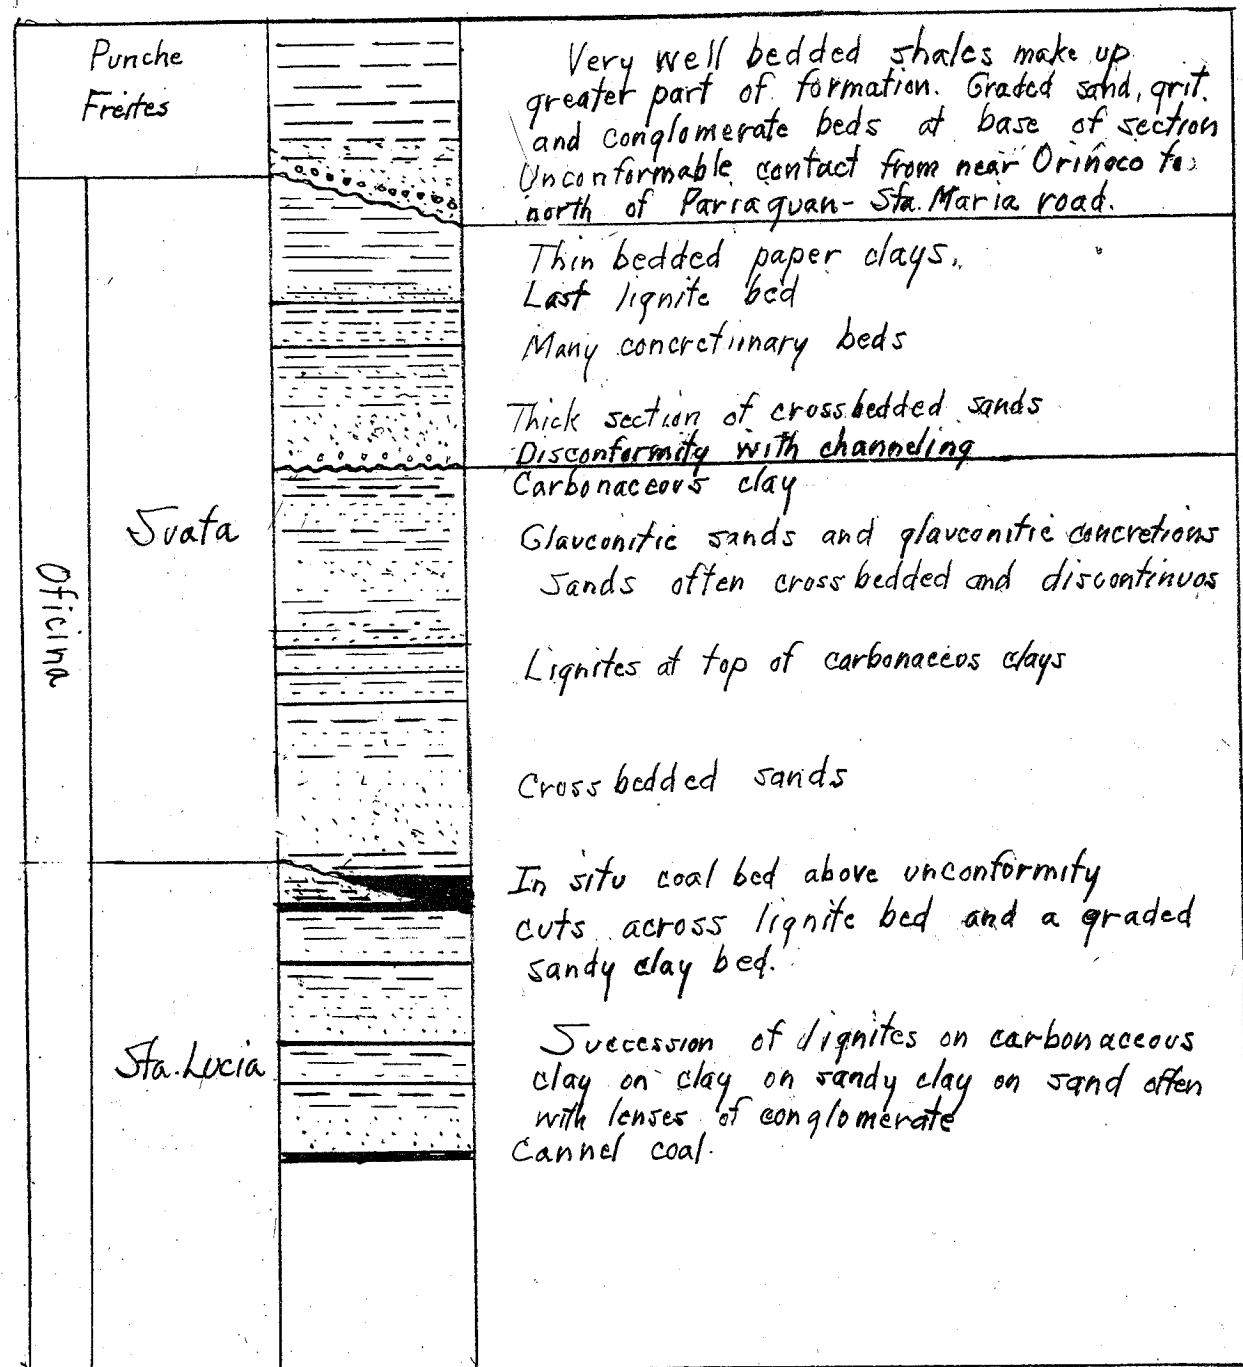 Punche
Freites
Very well bedded shales make up
greater part of formation. Graded sand, grit.
and conglomerate beds at base of section
Unconformable contact from near Oriñoco to
north of Pariaquan - Sta. Maria road.
Thin bedded paper clays.
Last lignite bed
Many concretionary beds
Thick section of crossbedded sands
Disconformity with channeling
Oficina
Suata
Carbonaceous clay
Glauconitic sands and glauconitic concretions
sands often cross bedded and discontinuos
Lignites at top of carbonaceos clays
Cross bedded sands
Sta. Lucia
In situ coal bed above unconformity
cuts across lignite bed and a graded
sandy clay bed.
Succession of lignites on carbonaceous
clay on clay on sandy clay on sand often
with lenses of conglomerate
Cannel coal.